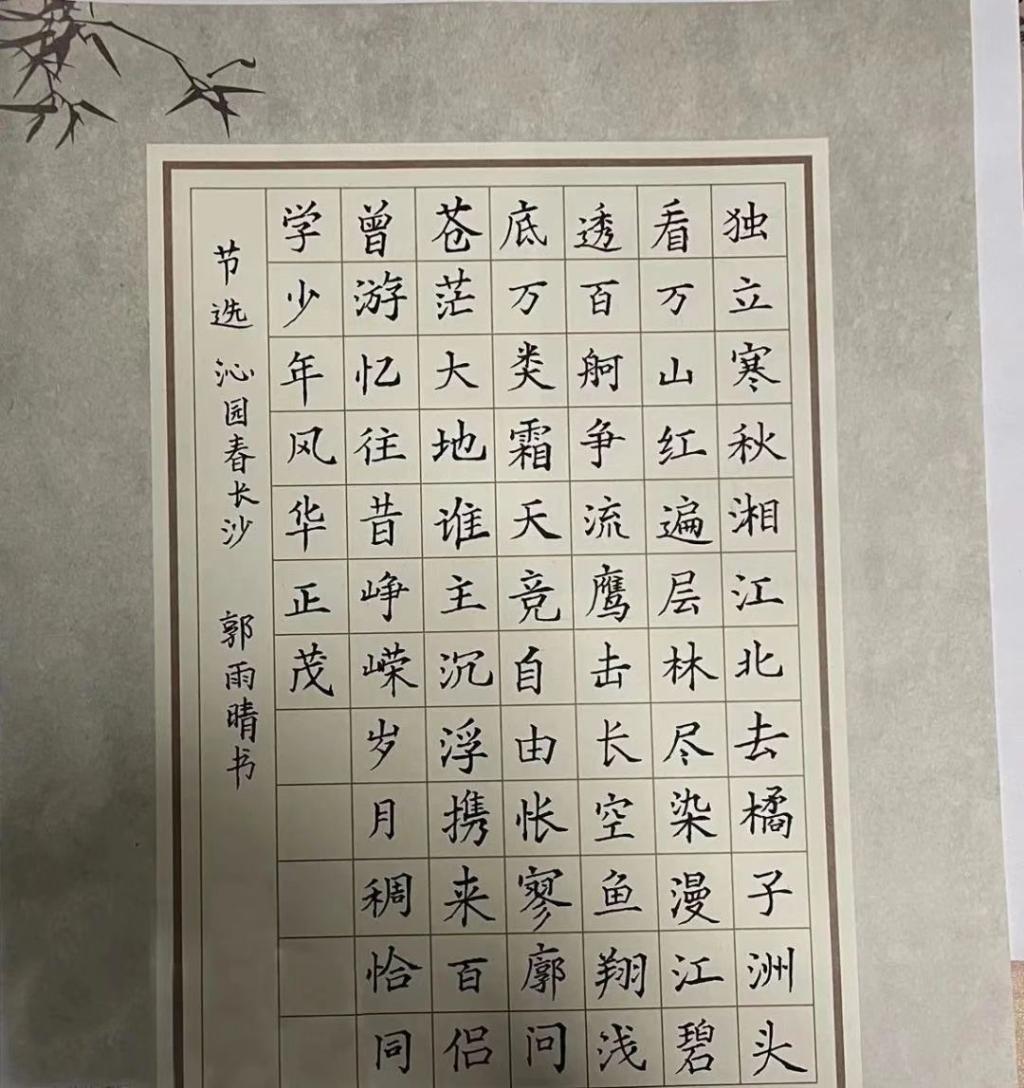 独立寒秋湘江北去橘子洲头
看万山红遍层林尽染漫江碧
透百舸争流鹰击长空鱼翔浅
底万类霜天竞自由怅寥廓问
苍茫大地谁主沉浮携来百侣
曾游忆往昔峥嵘岁月稠恰同
学少年风华正茂
节选 沁园春长沙 郭雨晴书